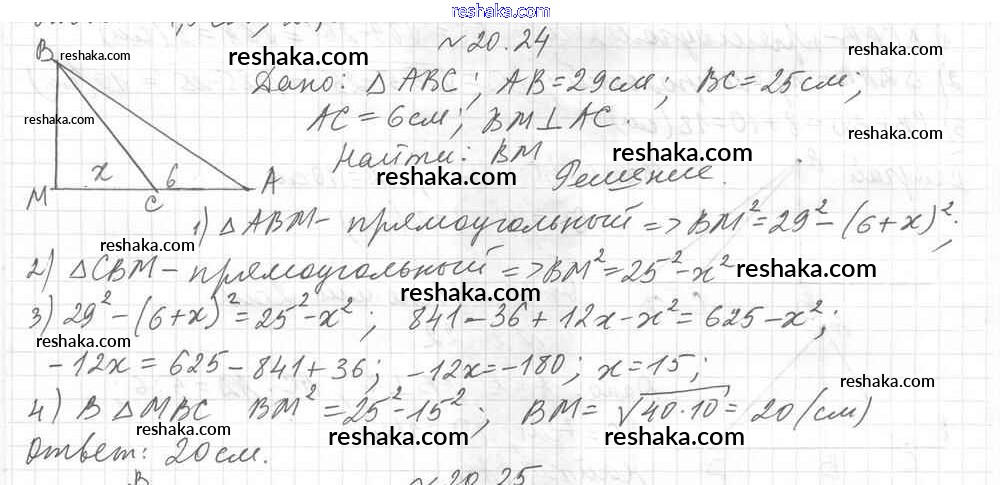 www.reshaka.com
№ 20.24
B reshaka.com
Дано: △ABC; AB=29см; BC=25см;
reshaka.com
reshaka.com
AC=6см; BM⊥AC.
reshaka.com
Найти: BM
reshaka.com
reshaka.com
Решение.
M x C 6 A
1) △ABM – прямоугольный => BM²=29²–(6+x)²;
reshaka.com
2) △CBM – прямоугольный => BM²=25²-x²
reshaka.com
reshaka.com
3) 29²–(6+x)²=25²-x²; 841–36+12x–x²=625–x²;
reshaka.com
–12x=625–841+36; –12x=–180; x=15;
reshaka.com
4) В △MBC BM²=25²-15²; BM=√40·10=20(см)
reshaka.com
reshaka.com
reshaka.com
Ответ: 20см.
B № 20.25